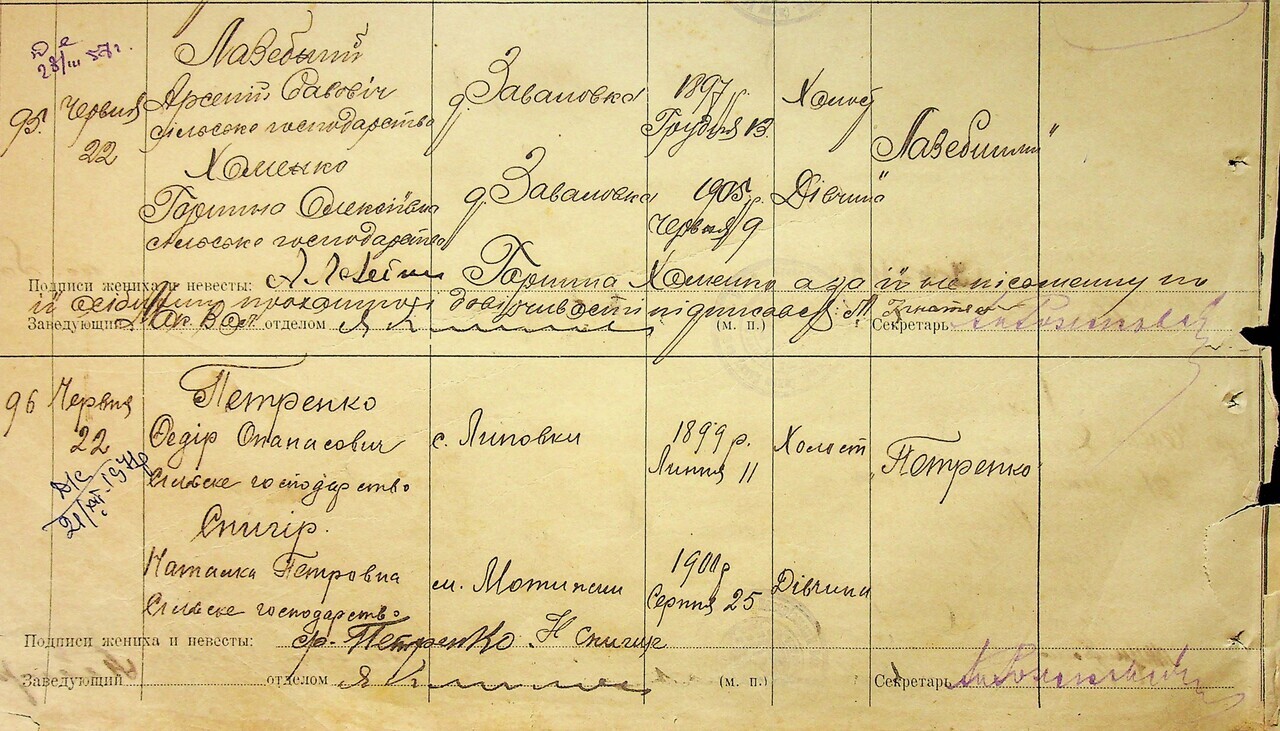 28/III 58 г.
95. Червня 22
Лазебний
Арсеній Савовіч
сільське господарство
д. Заваловка
1897 р.
Грудня 13
Холост
„Лазебними“
Хоменко
Горпина Олексіївна
сільське господарство
д. Заваловка
1905 р.
Червня 9
Дівчина
Подписи жениха и невесты: А Лазебний Горпина Хоменко а за її неписьменну по
її особистим проханням і довірчивості підписався
Заведующий отделом (м. п.) Секретарь
96 Червня 22
21/XII-1971 р
Петренко
Федір Опанасович
Сільске господарство
с. Липовки
1899 р.
Липня 11
Холост
„Петренко“
Снигір.
Наталка Петровна
Сільске господарство
м. Мотижин
1901 р
Серпня 25
Дівчина
Подписи жениха и невесты: Ф. Петренко. Н Снигир
Заведующий отделом (м. п.) Секретарь